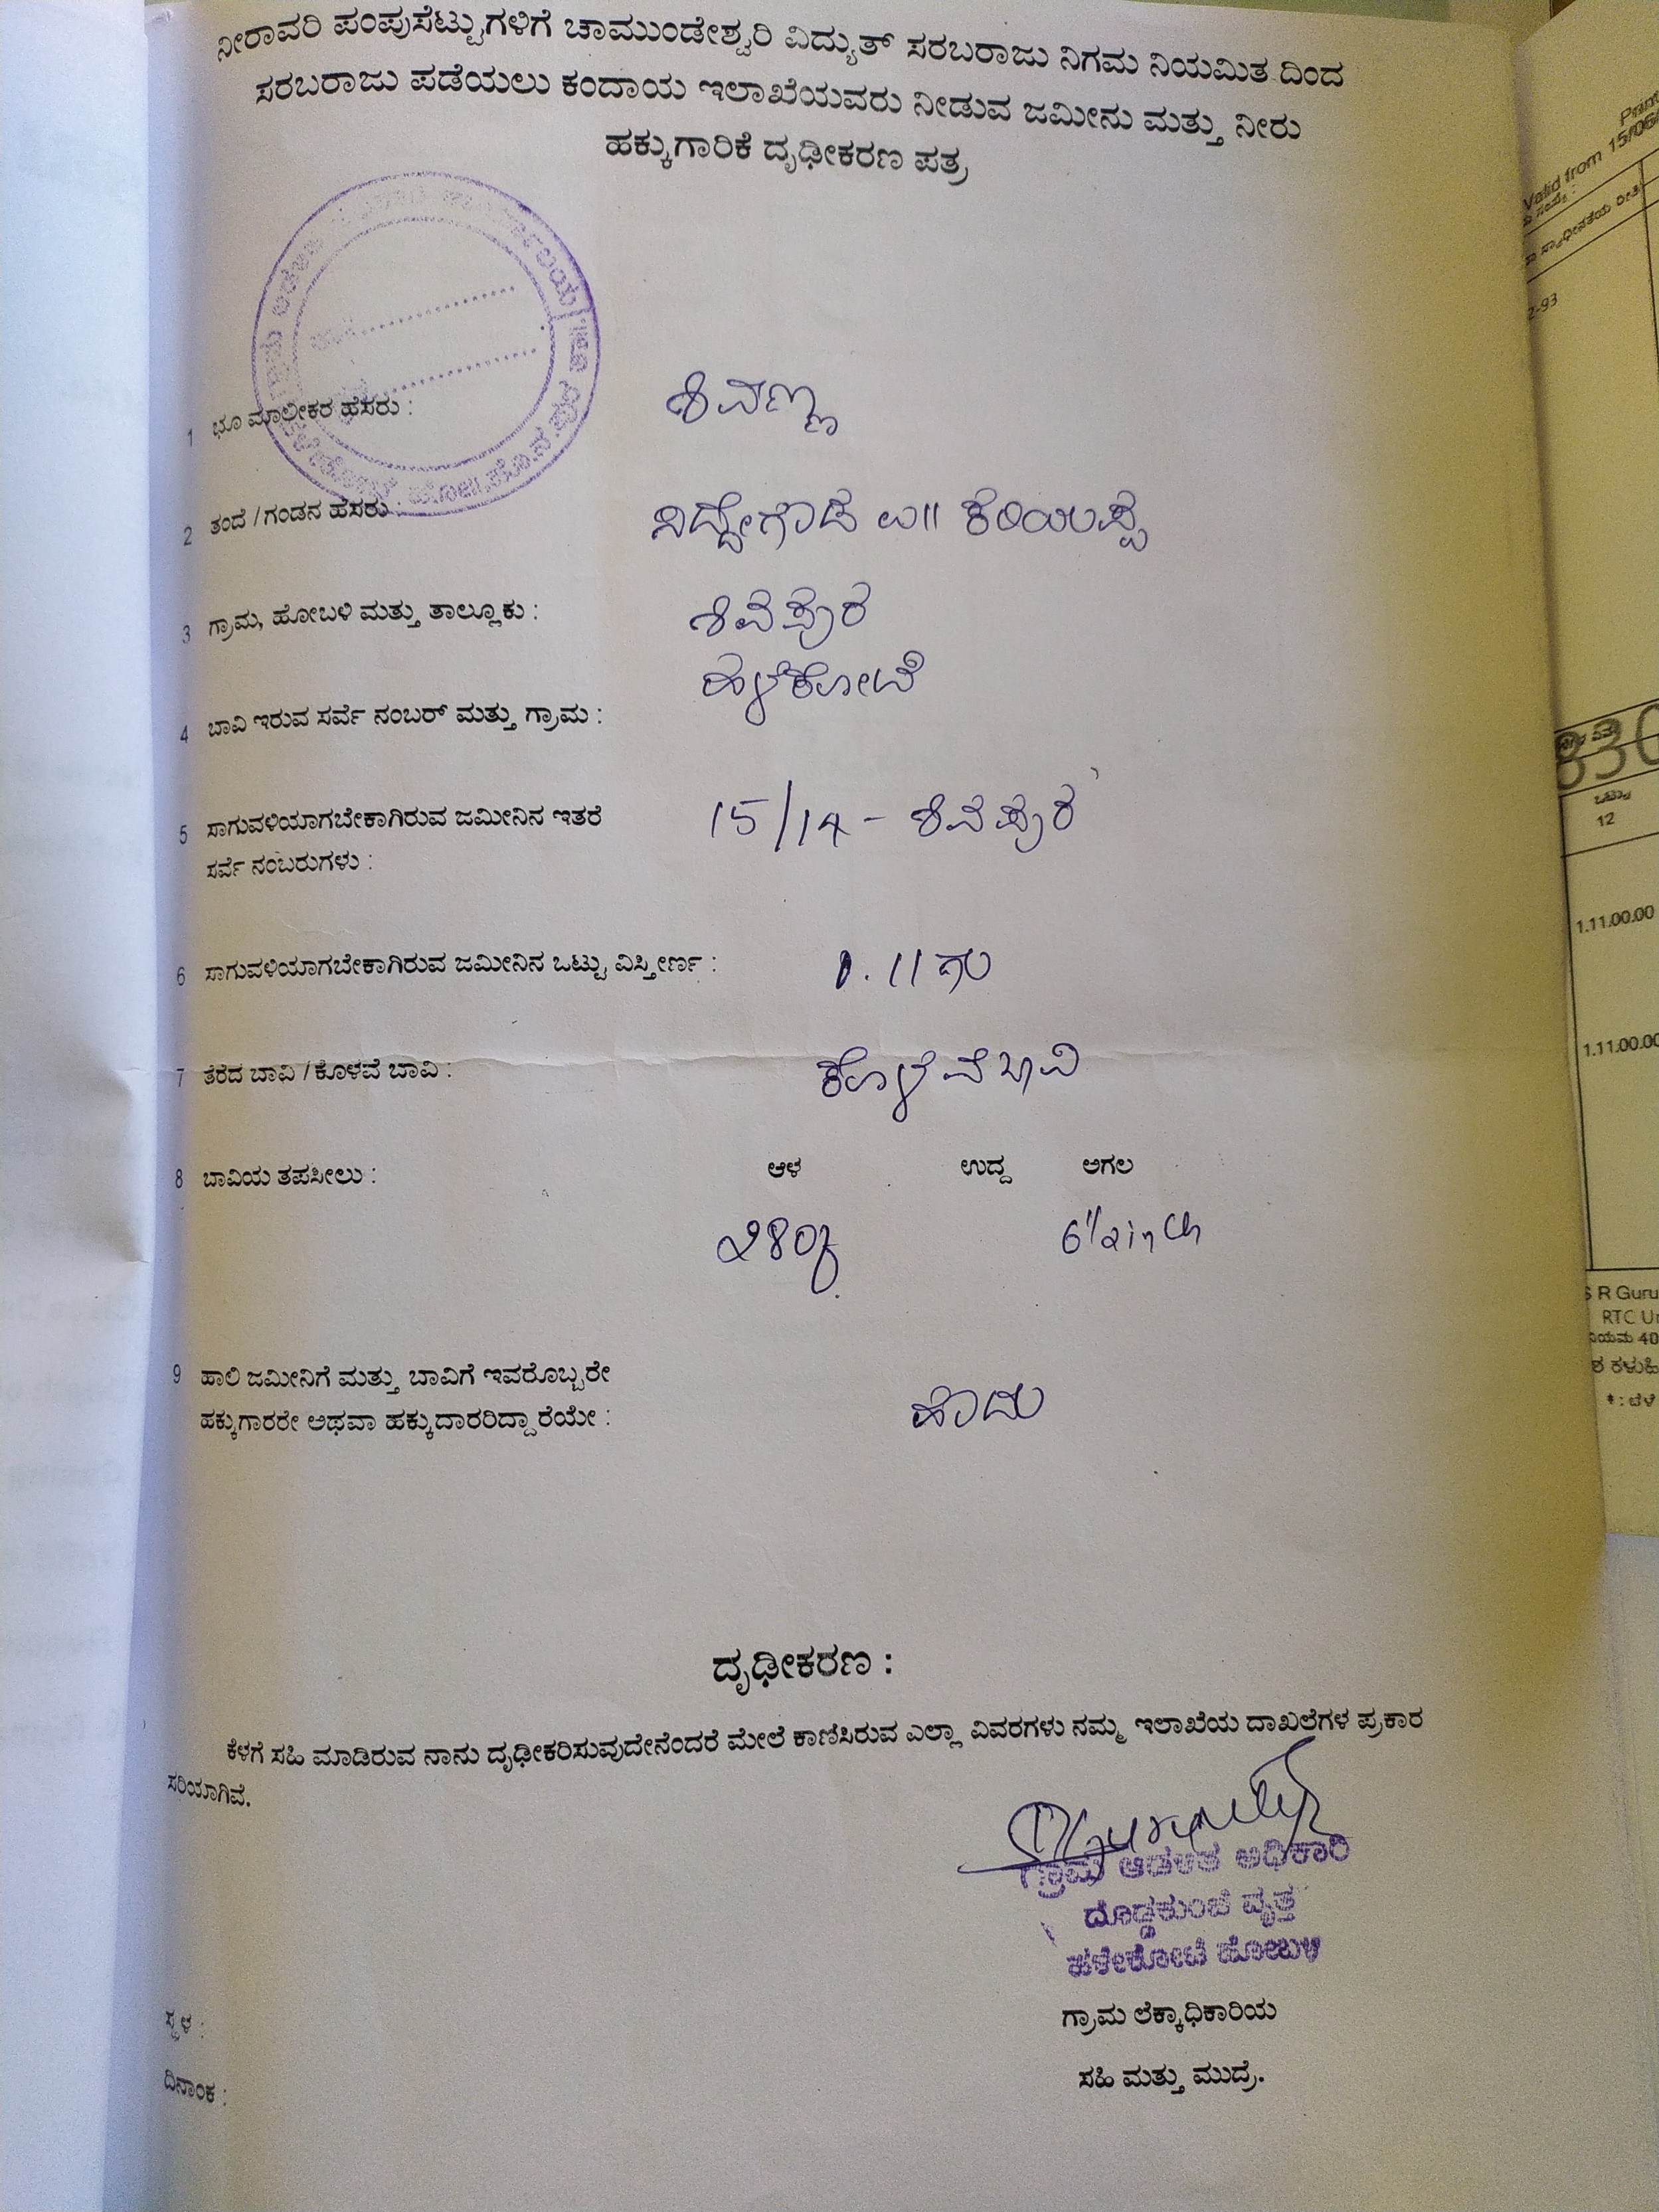 ನೀರಾವರಿ ಪಂಪುಸೆಟ್ಟುಗಳಿಗೆ ಚಾಮುಂಡೇಶ್ವರಿ ವಿದ್ಯುತ್ ಸರಬರಾಜು ನಿಗಮ ನಿಯಮಿತ ದಿಂದ
ಸರಬರಾಜು ಪಡೆಯಲು ಕಂದಾಯ ಇಲಾಖೆಯವರು ನೀಡುವ ಜಮೀನು ಮತ್ತು ನೀರು
ಹಕ್ಕುಗಾರಿಕೆ ದೃಢೀಕರಣ ಪತ್ರ
1 ಭೂ ಮಾಲೀಕರ ಹೆಸರು : ಶಿವಣ್ಣ
2 ತಂದೆ / ಗಂಡನ ಹೆಸರು : ಸಿದ್ದೇಗೌಡ ಬಿ॥
3 ಗ್ರಾಮ, ಹೋಬಳಿ ಮತ್ತು ತಾಲ್ಲೂಕು : ಶಿವಪುರ
ಹಳೇಕೋಟೆ
4 ಬಾವಿ ಇರುವ ಸರ್ವೆ ನಂಬರ್ ಮತ್ತು ಗ್ರಾಮ :
5 ಸಾಗುವಳಿಯಾಗಬೇಕಾಗಿರುವ ಜಮೀನಿನ ಇತರೆ 15/14 - ಶಿವಪುರ
ಸರ್ವೆ ನಂಬರುಗಳು :
6 ಸಾಗುವಳಿಯಾಗಬೇಕಾಗಿರುವ ಜಮೀನಿನ ಒಟ್ಟು ವಿಸ್ತೀರ್ಣ : 1.11 ಗು
7 ತೆರೆದ ಬಾವಿ / ಕೊಳವೆ ಬಾವಿ : ಕೊಳವೆ ಬಾವಿ
8 ಬಾವಿಯ ತಪಸೀಲು : ಆಳ ಉದ್ದ ಅಗಲ
280f 6 1/2 inch
9 ಹಾಲಿ ಜಮೀನಿಗೆ ಮತ್ತು ಬಾವಿಗೆ ಇವರೊಬ್ಬರೇ
ಹಕ್ಕುಗಾರರೇ ಅಥವಾ ಹಕ್ಕುದಾರರಿದ್ದಾರೆಯೇ : ಹೌದು
ದೃಢೀಕರಣ :
ಕೆಳಗೆ ಸಹಿ ಮಾಡಿರುವ ನಾನು ದೃಢೀಕರಿಸುವುದೇನೆಂದರೆ ಮೇಲೆ ಕಾಣಿಸಿರುವ ಎಲ್ಲಾ ವಿವರಗಳು ನಮ್ಮ ಇಲಾಖೆಯ ದಾಖಲೆಗಳ ಪ್ರಕಾರ
ಸರಿಯಾಗಿವೆ.
ಗ್ರಾಮ ಆಡಳಿತ ಅಧಿಕಾರಿ
ದೊಡ್ಡಕುಂಚೆ ವೃತ್ತ
ಹಳೇಕೋಟೆ ಹೋಬಳಿ
ಗ್ರಾಮ ಲೆಕ್ಕಾಧಿಕಾರಿಯ
ಸಹಿ ಮತ್ತು ಮುದ್ರೆ.
ಸ್ಥಳ :
ದಿನಾಂಕ :
Valid from 15/06/
2-93
830
ಒಟ್ಟು
12
1.11.00.00
1.11.00.00
S R Guru
RTC